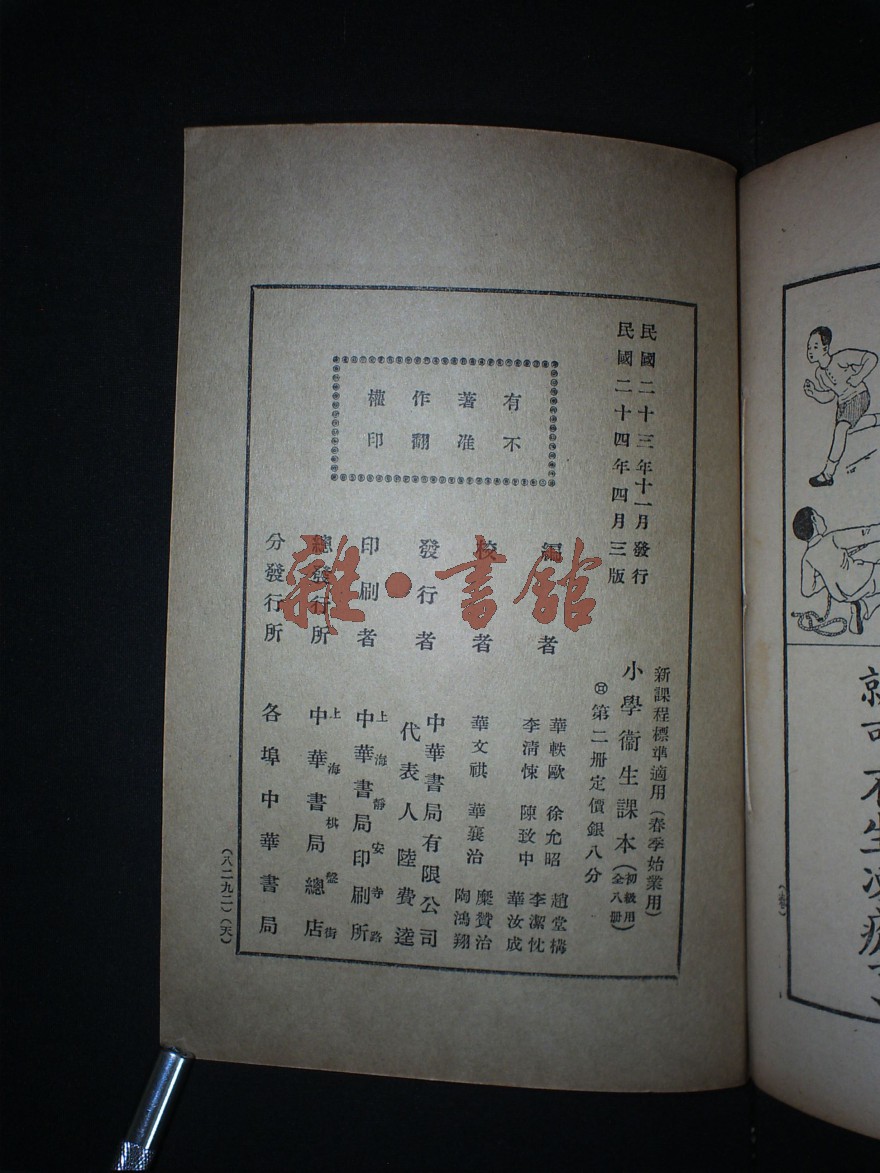 民國二十三年十一月發行
民國二十四年四月三版
新課程標準適用(春季始業用)
小學衞生課本(初級用全八册)
第二册定價銀八分
有著作權
不准翻印
編者
華軼歐 徐允昭 趙堂構
李清悚 陳致中 李潔忱
華汝成
校者
華文祺 華襄治 糜贊治
陶鴻翔
發行者
中華書局有限公司
代表人陸費逵
印刷者
上海靜安寺路
中華書局印刷所
總發行所
上海棋盤街
中華書局總店
分發行所
各埠中華書局
(八二九二)(天)
雜·書館
就可不生